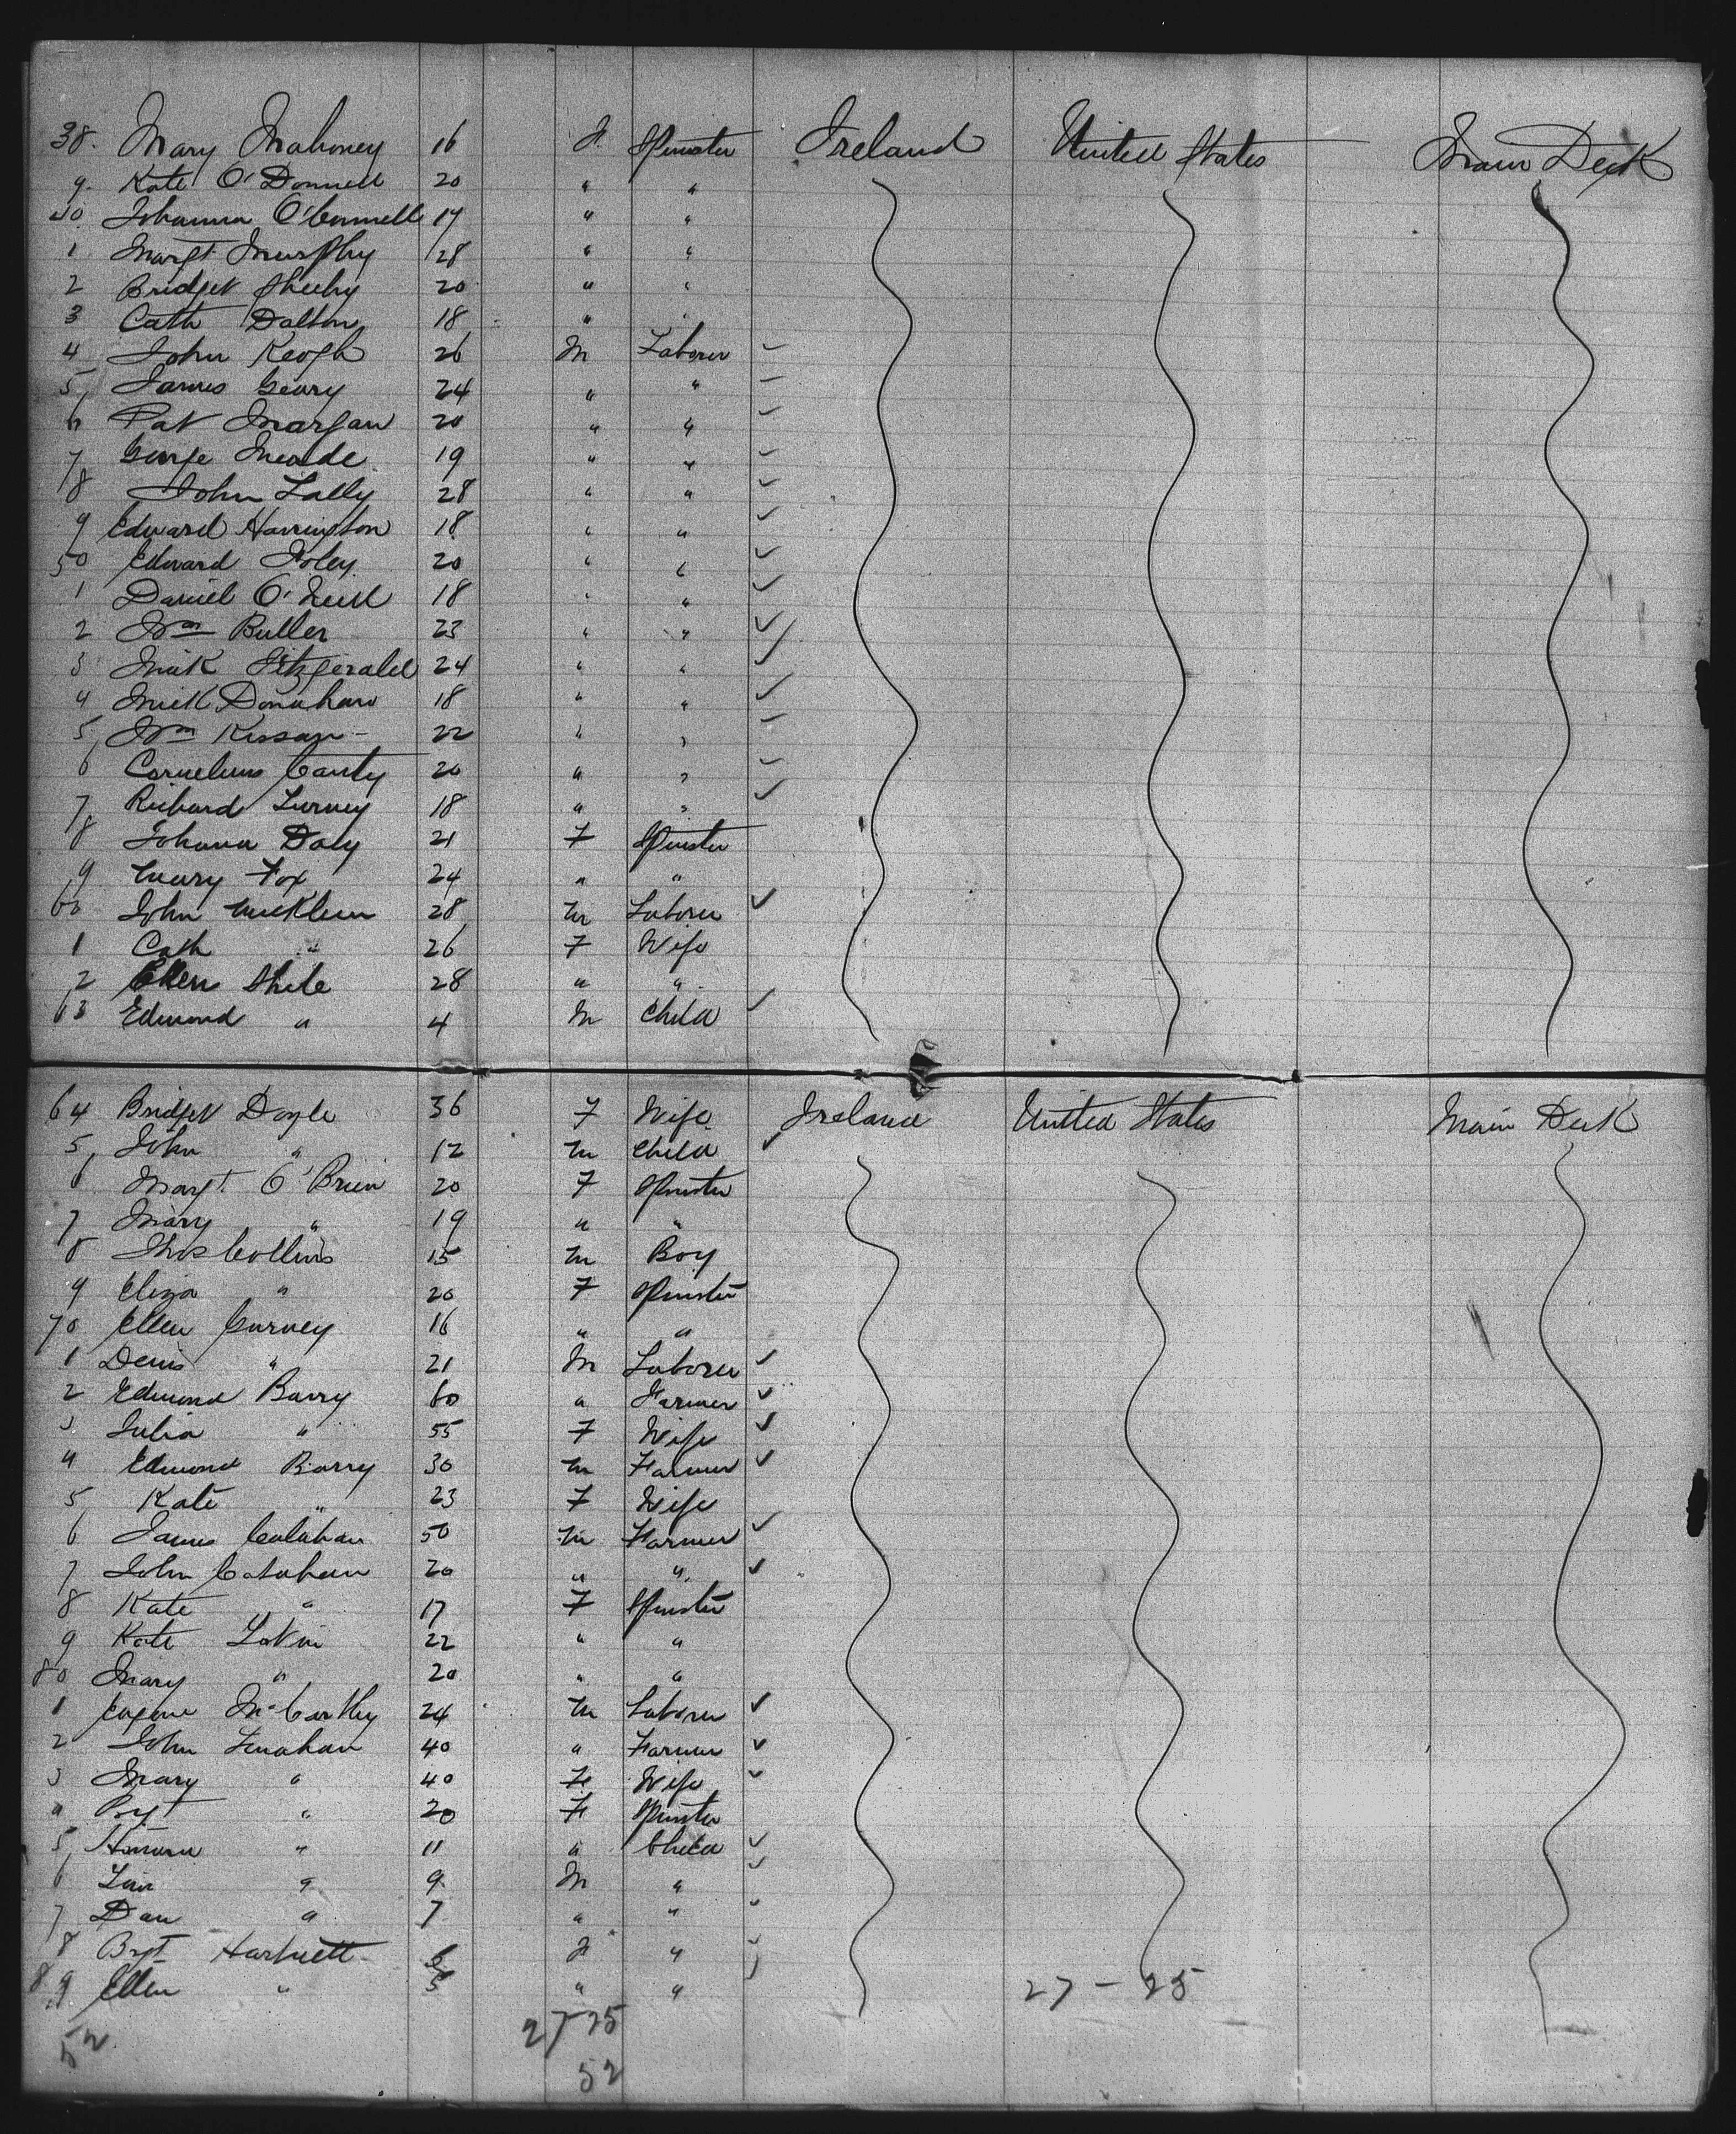 38. Mary Mahoney 16 F. Spinster Ireland United States Main Deck
9. Kate O'Donnell 20 " "
40. Johanna O'Connell 17 " "
1 Margt. Murphy 28 " "
2 Bridget Sheehy 20 " "
3 Cath Dalton 18 " "
4 John Keogh 26 M Laborer
5 James Geary 24 " "
6 Pat Margan 20 " "
7 George Meade 19 " "
8 John Lally 28 " "
9 Edward Harrington 18 " "
50 Edward Foley 20 " "
1 Daniel O'Neill 18 " "
2 Wm Butler 23 " "
3 Mick Fitzgerald 24 " "
4 Mick Donahaw 18 " "
5 Wm Kissan 22 " "
6 Cornelius Canty 20 " "
7 Richard Turney 18 " "
8 Johana Daly 21 F Spinster
9 Mary Fox 24 " "
60 John 28 M Laborer
1 Cath " 26 F Wife
2 Ellen Shile 28 " "
63 Edmond " 4 M Child
64 Bridget Doyle 36 F Wife Ireland United States Main Deck
5 John " 12 M Child
6 Margt. O'Brien 20 F Spinster
7 Mary " 19 " "
8 Thos Collins 15 M Boy
9 Eliza " 20 F Spinster
70 Ellen Gurney 16 " "
1 Denis " 21 M Laborer
2 Edmond Barry 60 " Farmer
3 Julia " 55 F Wife
4 Edmond Barry 30 M Farmer
5 Kate " 23 F Wife
6 James Calahan 50 M Farmer
7 John Calahan 20 " "
8 Kate " 17 F Spinster
9 Kate 22 " "
80 Mary " 20 " "
1 Eugene McCarthy 24 M Laborer
2 John Lenahan 40 " Farmer
3 Mary " 40 F Wife
4 " 20 F Spinster
5 Honora " 11 " Child
6 " 9 M "
7 Dan " 7 " "
8 Bgt Hartnett F "
89 Ellen " 5 " " 27 - 25
52 27 25
52